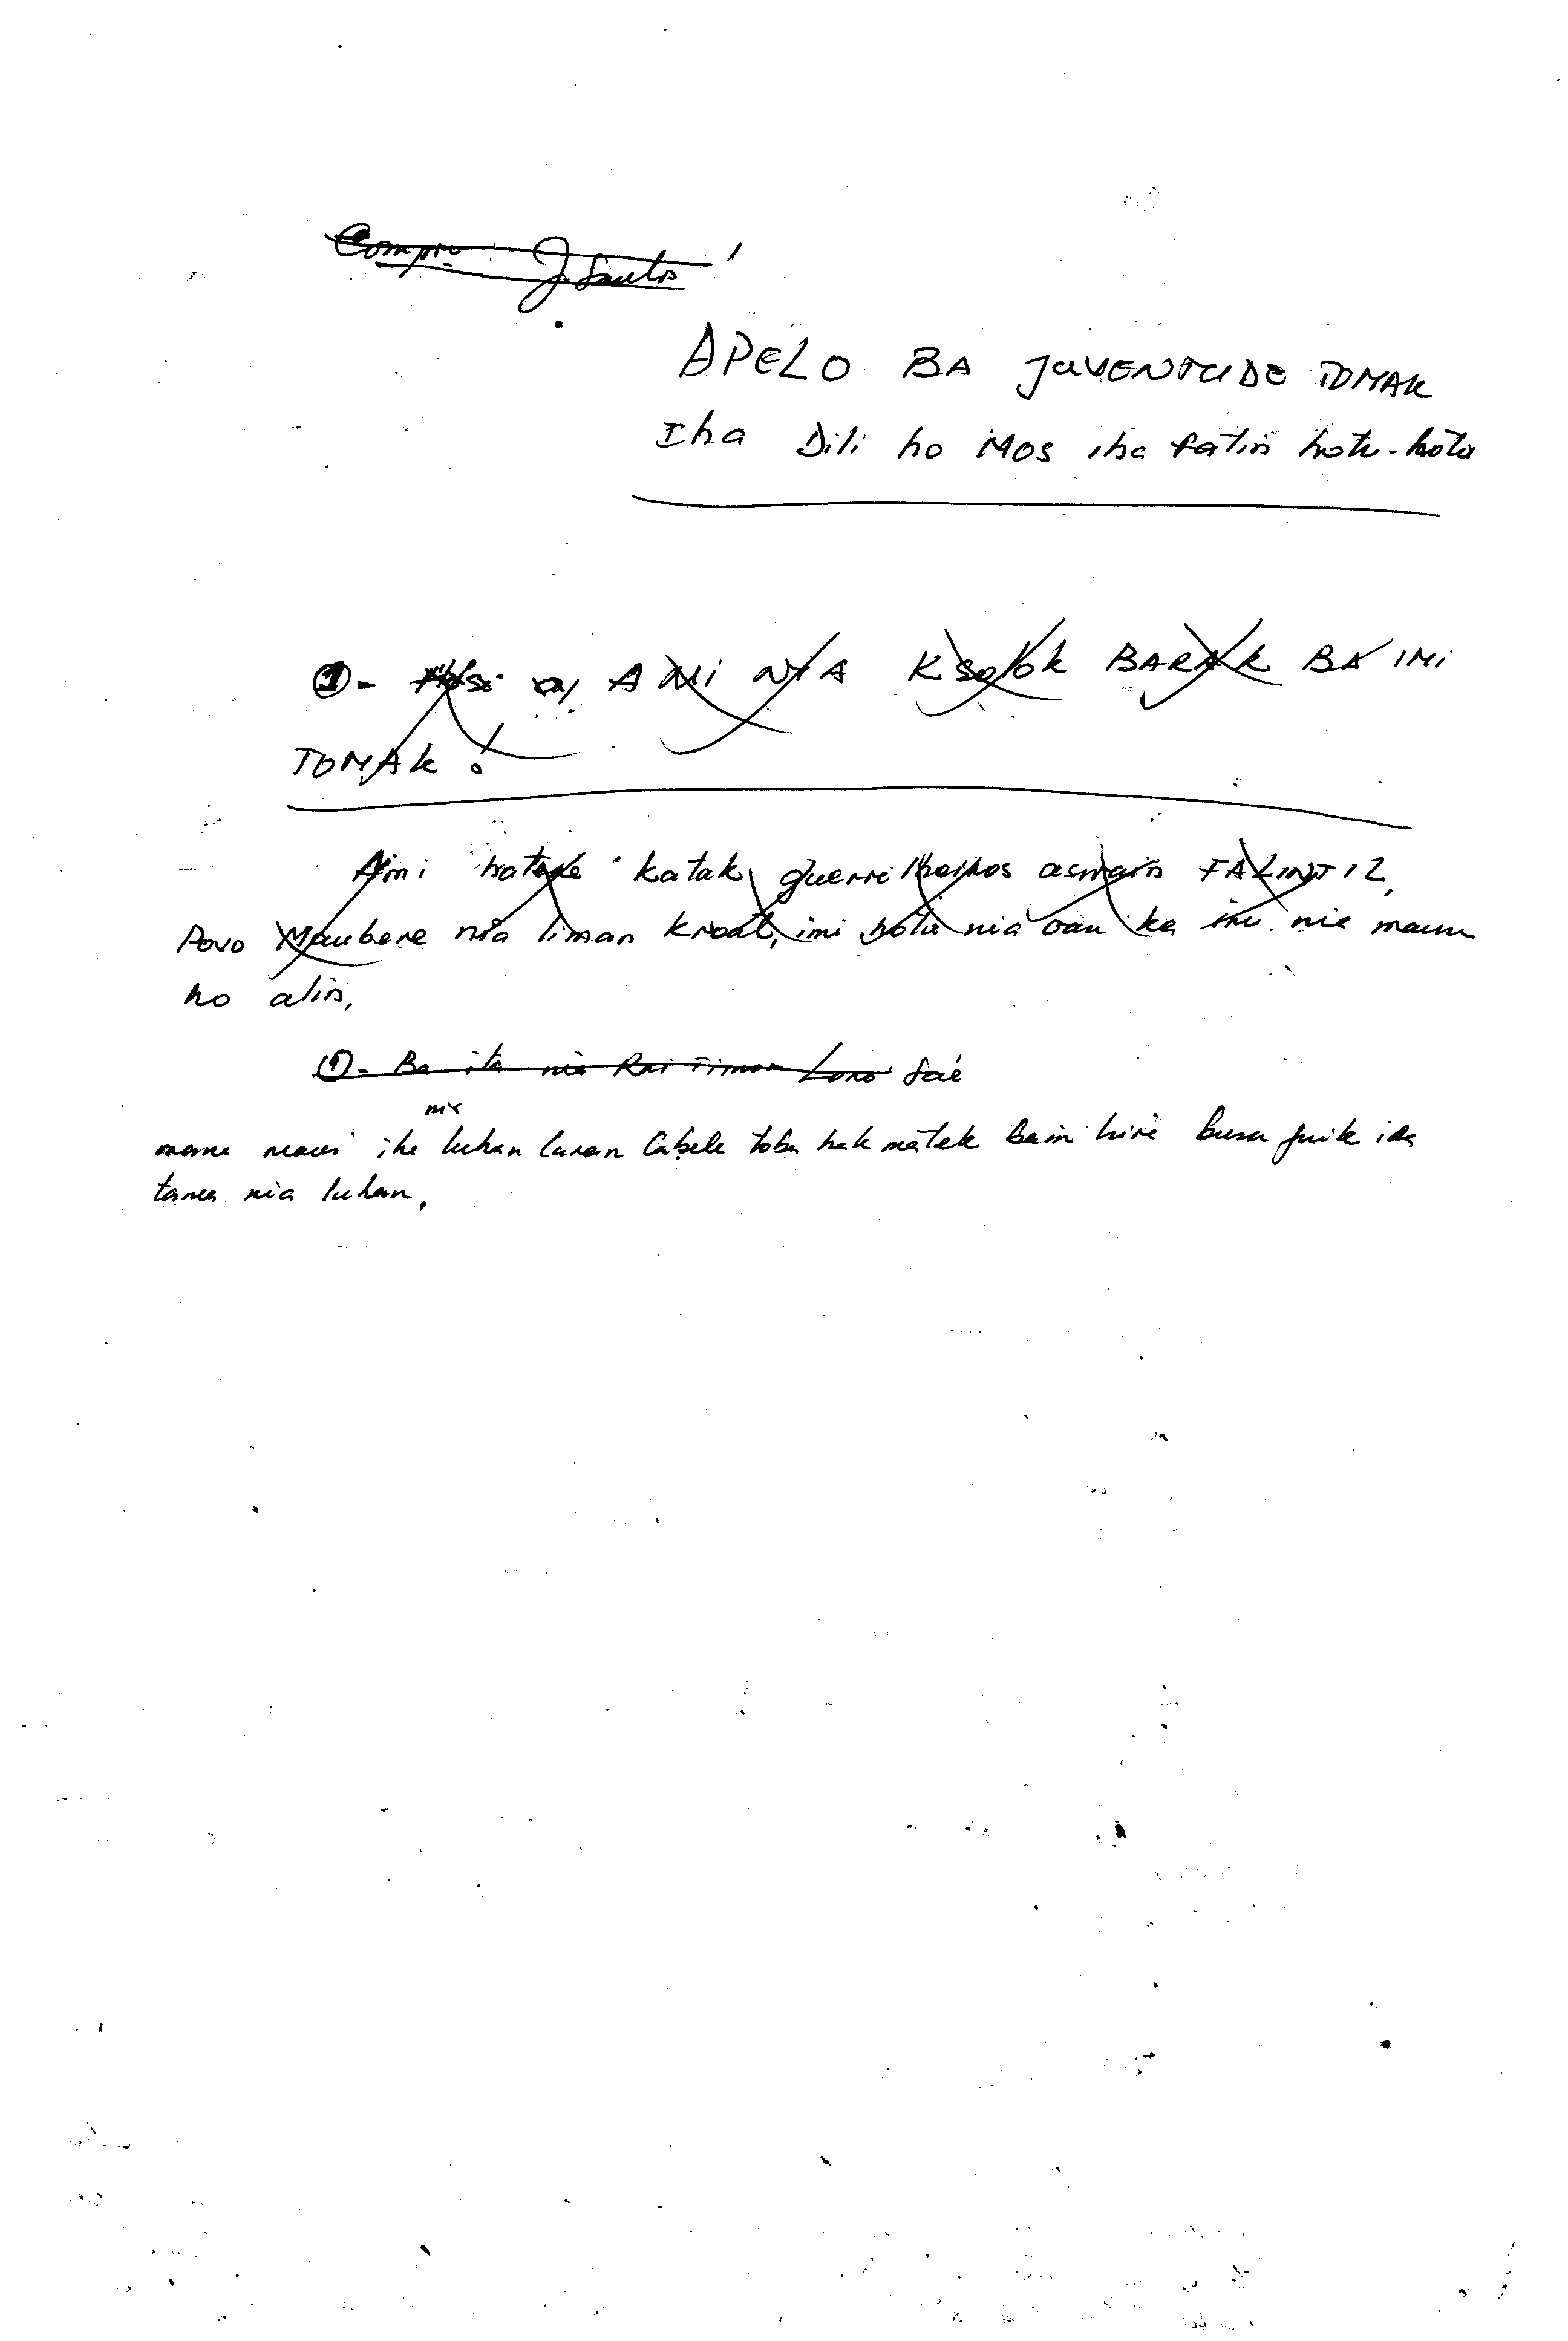 Compro J. Santos !
APELO BA JUVENTUDE TOMAK
Iha Dili ho Mos iha fatin hotu-hotu
1- Husi AMI NIA KSOLOK BARAK BA IMI
TOMAK !
Ami hateke katak guerrilheiros aswain FALINTIL,
Povo Maubere nia liman kroat, imi hotu nia oan ka imi nia maun
ho alin,
1- Ba ita nia Rai Timor Loro Saé
nia
iha luhan laran labele toba hakmatek bain hira busa fuik ida
tama nia luhan,